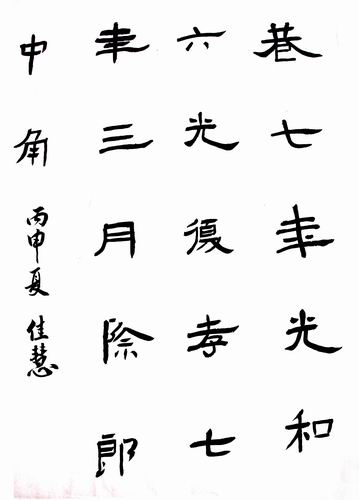 巷七年光和
六光復孝七
年三月除郎
中角
丙申夏佳慧